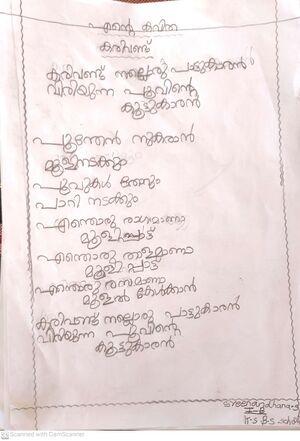 എന്റെ കവിത
കരിവണ്ട്
കരിവണ്ട് നല്ലൊരു പാട്ടുകാരൻ
വിരിയുന്ന പൂവിന്റെ
കൂട്ടുകാരൻ
പൂന്തേൻ നുകരാൻ
മൂളിനടക്കും
പൂവുകൾ തോറും
പാറി നടക്കും
എന്തൊരു രാഗമാണാ
മൂളിപ്പാട്ട്
എന്തൊരു താളമാണാ
മൂളിപ്പാട്ട്
എന്തൊരു രസമാണാ
മൂളൽ കേൾക്കാൻ
കരിവണ്ട് നല്ലൊരു പാട്ടുകാരൻ
വിരിയുന്ന പൂവിന്റെ
കൂട്ടുകാരൻ
Sreenandhana.S
II-B
Scanned with CamScanner